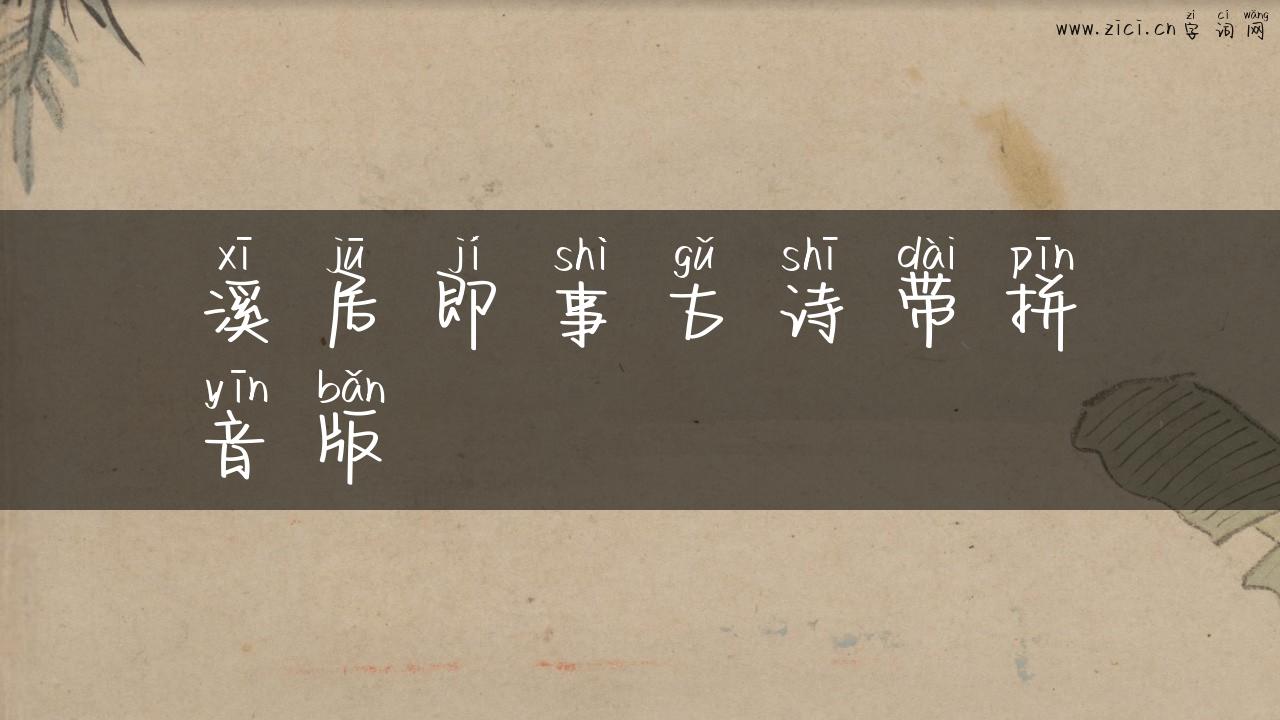 zì cí wǎng
www.zici.cn字词网
xī jū jí shì gǔ shī dài pīn
溪居即事古诗带拼
yīn bǎn
音版